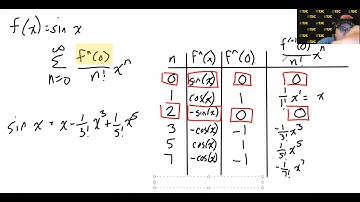 f(x) = sin x
∞
∑ fⁿ(0)/n! xⁿ
n=0
sin x = x - 1/3! x³ + 1/5! x⁵
n fⁿ(x) fⁿ(0) fⁿ(0)/n! xⁿ
0 sin(x) 0 0
1 cos(x) 1 1/1! x¹ = x
2 -sin(x) 0 0
3 -cos(x) -1 -1/3! x³
5 cos(x) 1 1/5! x⁵
7 -cos(x) -1 -1/7! x⁷